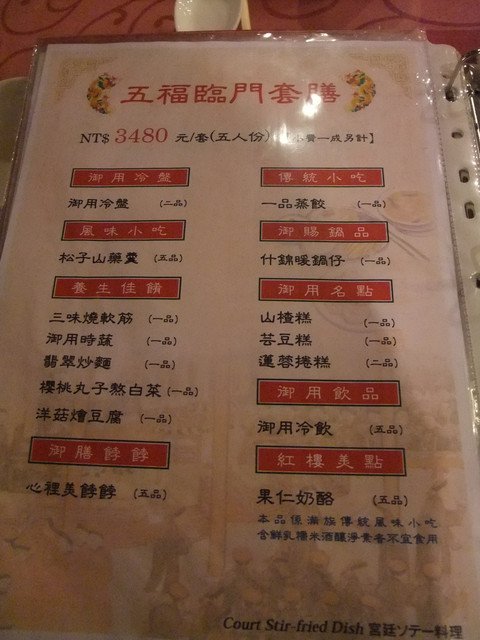 五福臨門套膳
NT$ 3480 元/套(五人份) 【小費一成另計】
御用冷盤
御用冷盤 (二品)
風味小吃
松子山藥羹 (五品)
養生佳餚
三味燒軟筋 (一品)
御用時蔬 (一品)
翡翠炒麵 (一品)
櫻桃丸子熬白菜 (一品)
洋菇燴豆腐 (一品)
御膳餑餑
心裡美餑餑 (五品)
傳統小吃
一品蒸餃 (一品)
御賜鍋品
什錦暖鍋仔 (一品)
御用名點
山楂糕 (一品)
芸豆糕 (一品)
蓮蓉捲糕 (二品)
御用飲品
御用冷飲 (五品)
紅樓美點
果仁奶酪 (五品)
本品係滿族傳統風味小吃
含鮮乳糯米酒釀淨素者不宜食用
Court Stir-fried Dish 宮廷ソテー料理